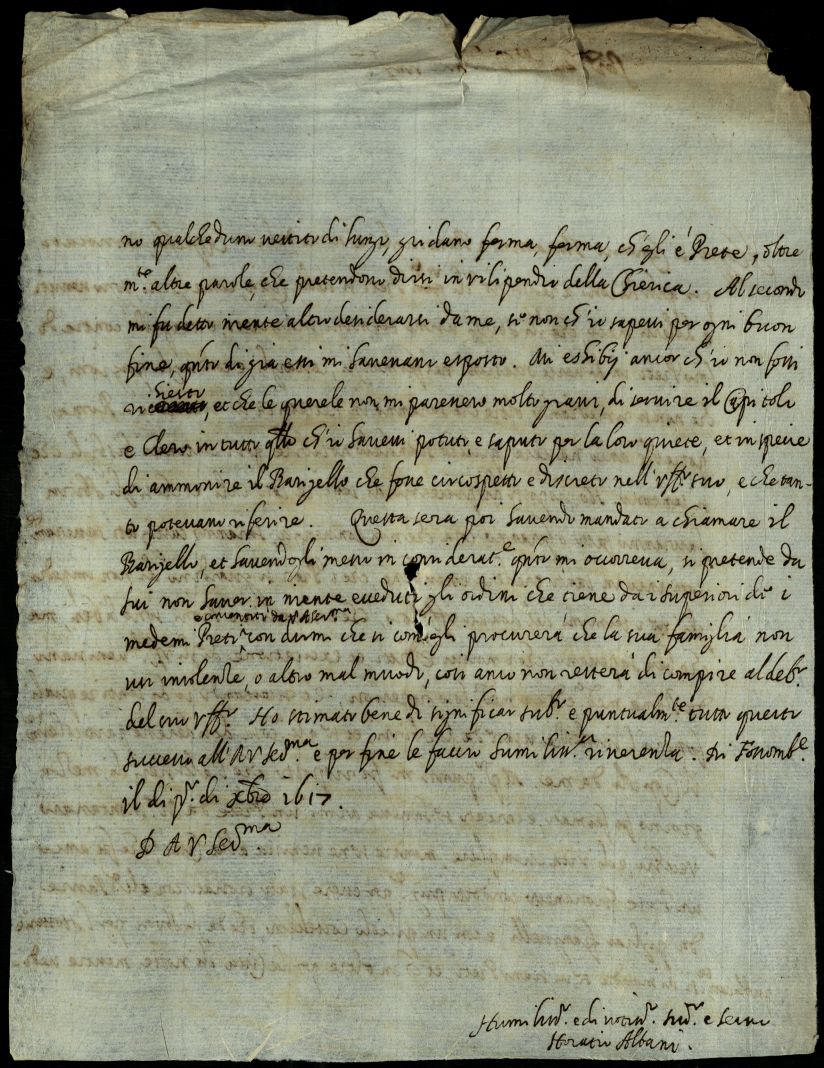 no qualcheduno vestito di lungo, gridano ferma, ferma, ch'egli è Prete, oltre
m.te altre parole, che pretendono dirsi in vilipendio della Chierica. Al secondo
mi fu detto niente altro desiderarsi da me, se non ch'io sapessi per ogni buon
fine, q.nto di già essi mi havevano esposto. Mi essibij ancor ch'io non fossi
richiesto, et che le querele non mi paressero molto gravi, di servire il Capitolo
e Clero in tutto q.llo ch'io havessi potuto, e saputo per la loro quiete, et in specie
di ammonire il Barigello che fosse circospetto e discreto nell'uff.o suo, e che tan-
to potevano riferire. Questa sera poi havendo mandato a chiamare il
Barigello, et havendogli messo in considerat.e q.nto mi occorreva, si pretende da
lui non haver in niente ecceduti gli ordini che tiene da i superiori de i
medemi Preti, con dirmi che si com'egli procurerà che la sua famiglia non
usi insolenze, o altro mal muodo, così anco non resterà di compire al deb.o
del suo uff.o Ho stimato bene di significar sub.o e puntualm.te tutto questo
successo all'A V Ser.ma e per fine le faccio humiliss.a riverenza. Di Fossomb.e
il di p.o di Xbre 1617.
D A V Ser.ma
Humiliss.o e divotiss.o sud.o e servo
Horatio Albani.